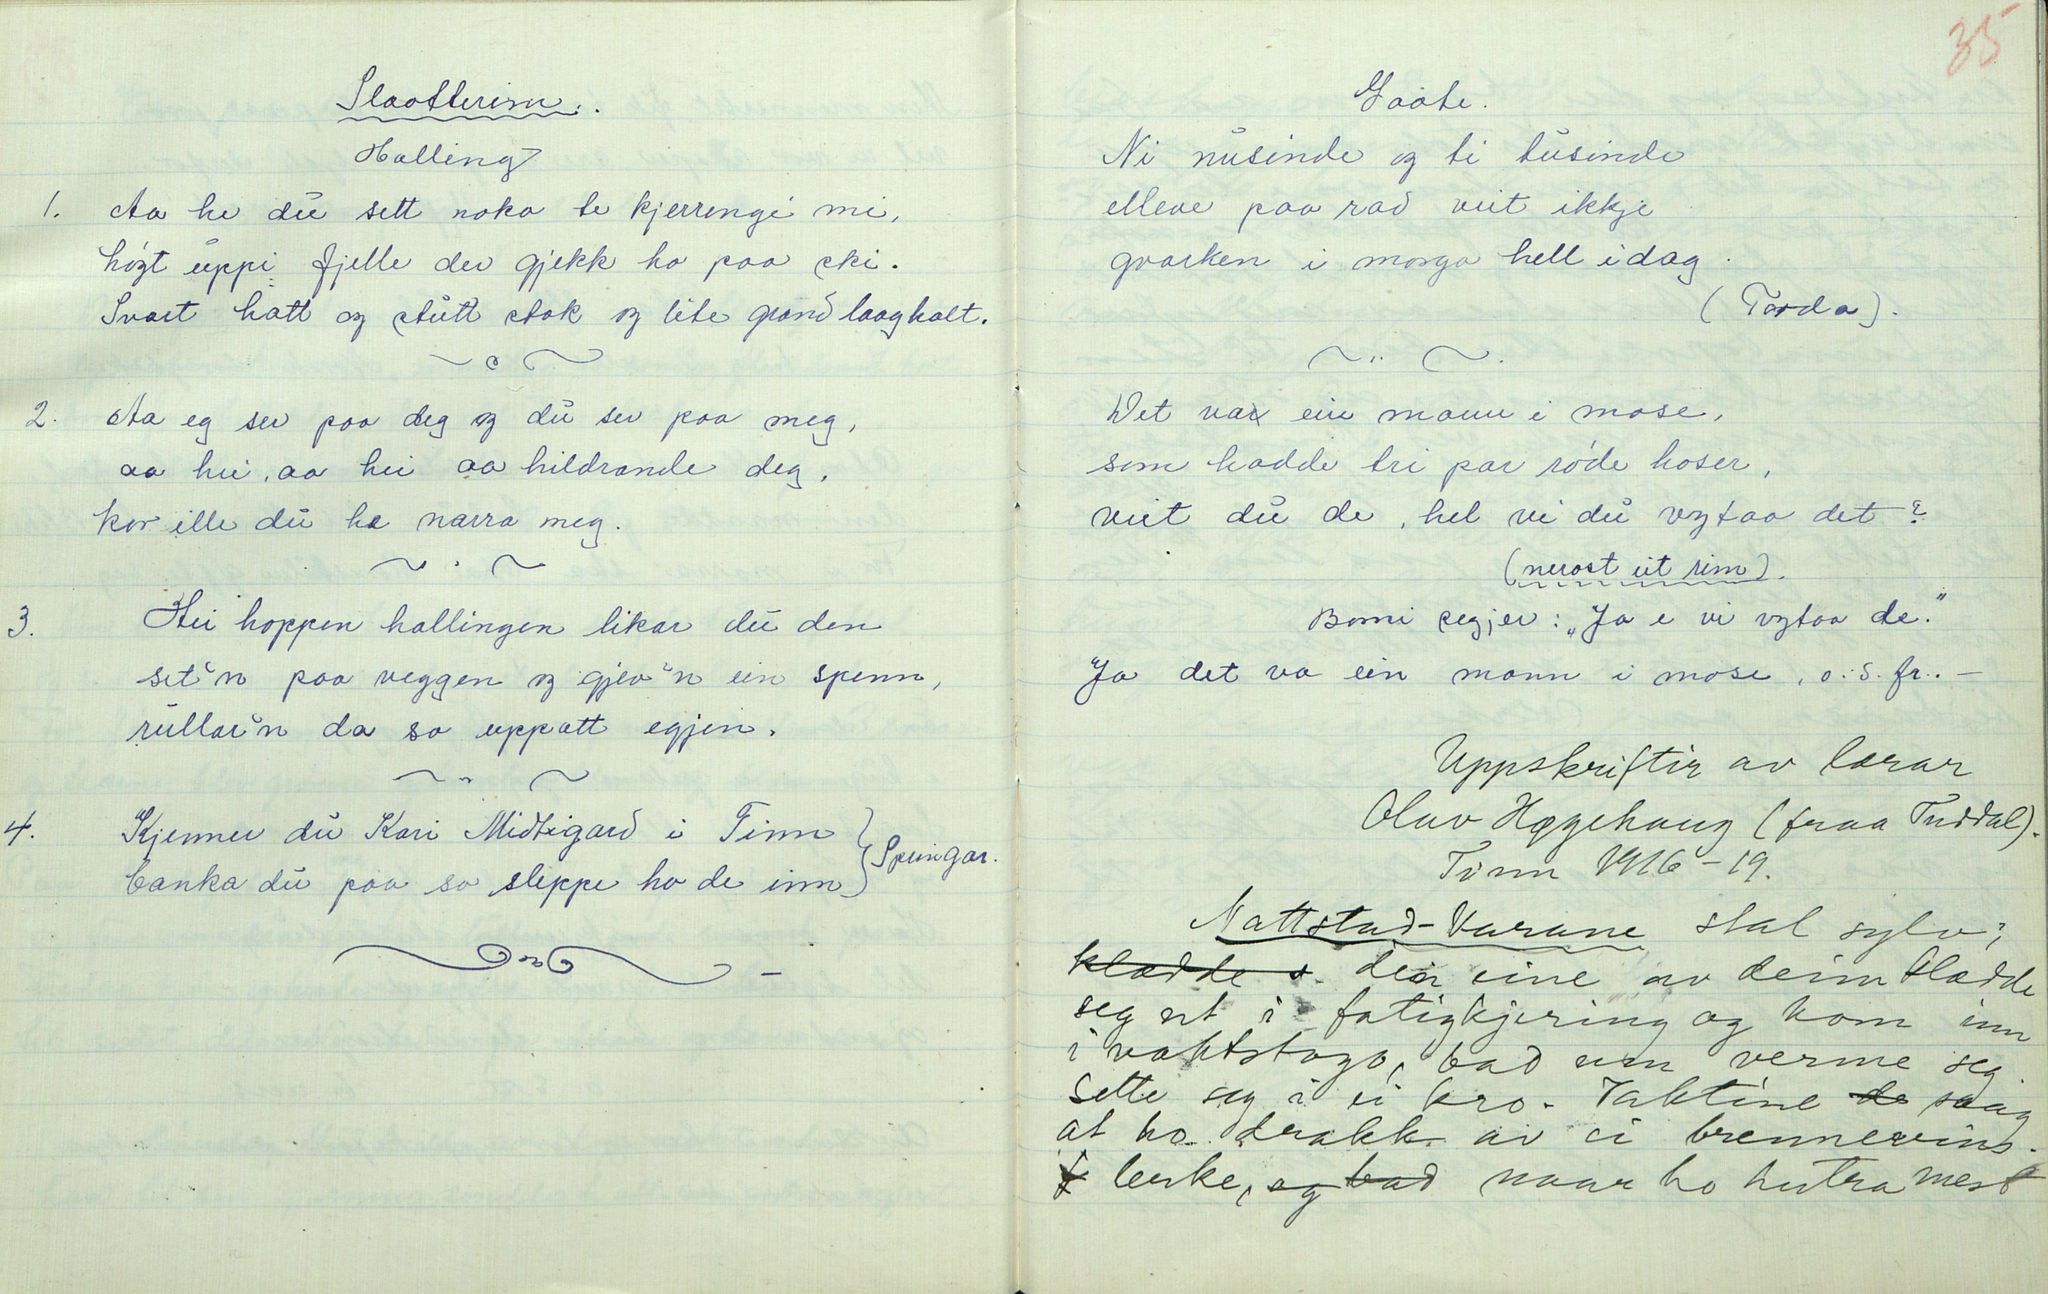 Slaatterim.
Halling
1. Aa he du sett noko te kjerringi mi,
høgt uppi fjelle der gjekk ho paa ski.
Svart hatt og stutt stak og lite grand laaghalt.
2. Aa eg ser paa deg og du ser paa meg,
aa hei, aa hei aa hildrande deg,
kor ille du he narra meg.
3. Hei hoppen hallingen likar du den
set'n paa veggen og gjev'n ein spenn,
rullar'n da so uppatt egjen.
4. Kjenner du Kari Midtigard i Tinn
banka du paa so sleppe ho de inn
Springar.
35
Gaate.
Ni nusinde og ti tusinde
elleve paa rad veit ikkje
gvarken i morgo hell idag.
(Torda).
Det var ein mann i mose,
som hadde tri par røde hoser,
veit du de, hel vi du vytaa det?
(nerast eit rim).
Borni segjer: „Ja e vi vytaa de."
Ja det va ein mann i mose, o.s.fr. –
Uppskriftir av lærar
Olav Høgehaug (fraa Tuddal).
Tinn 1916–19.
Nattstad-Karane stal sylv;
klædde s den eine av deim klædde
seg ut i fatigkjering og kom inn
i vaktstogo, bad um verme seg.
Sette seg i ei kro. Vaktine de saag
at ho drakk av ei brennevins-
lerke, og bad naar ho hutra mest